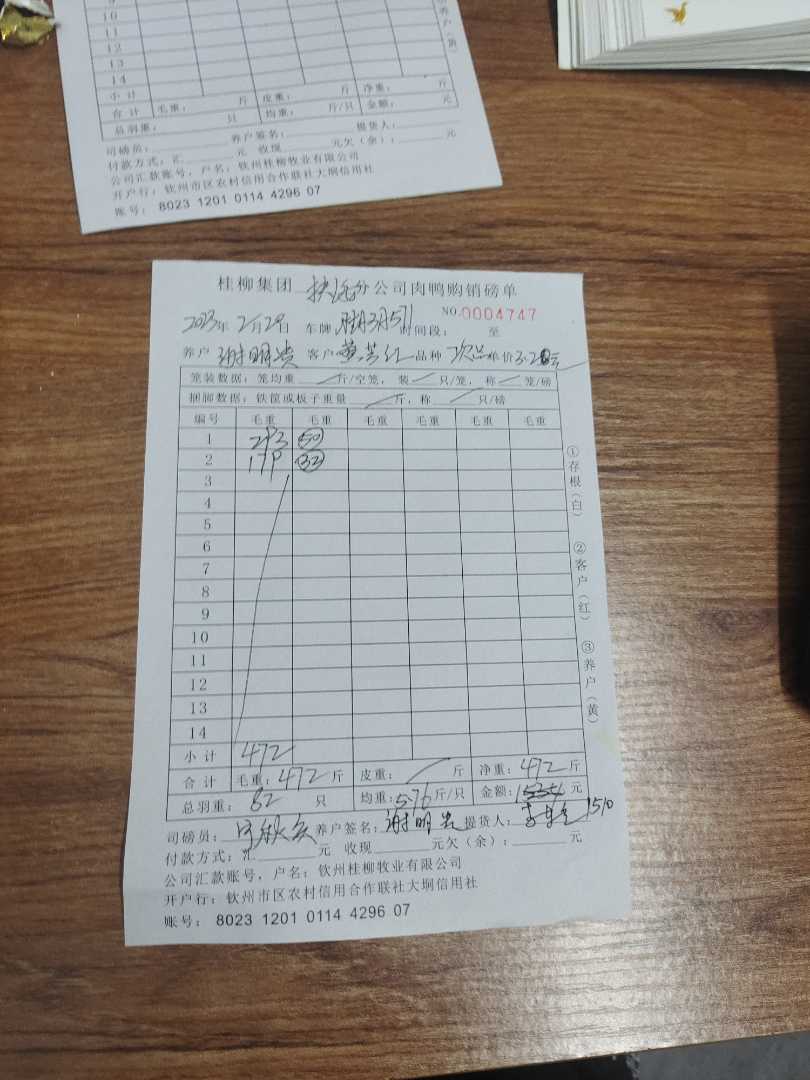 10
11
12
13
14
小 计
合 计 毛重： 斤 皮重： 斤 净重： 斤
总羽重： 只 均重： 斤/只 金额： 元
司磅员： 养户签名： 提货人：
付款方式：汇 元 收现 元欠（余）： 元
公司汇款账号，户名：钦州桂柳牧业有限公司
开户行：钦州市区农村信用合作联社大垌信用社
账号： 8023 1201 0114 4296 07
桂柳集团 分公司肉鸭购销磅单
NO.0004747
2023年2月29日 车牌 时间段： 至
养户 谢明贵 客户 黄芳红 品种 次品 单价 3.20元
笼装数据：笼均重 斤/空笼，装 只/笼，称 笼/磅
捆脚数据：铁筐或板子重量 斤，称 只/磅
编号 毛重 毛重 毛重 毛重 毛重 毛重
1 293 50
2 179 32
3
4
5
6
7
8
9
10
11
12
13
14
小 计 472
合 计 毛重：472 斤 皮重： 斤 净重：472 斤
总羽重：82 只 均重：5.76 斤/只 金额： 元
1510
司磅员： 养户签名：谢明贵 提货人：
付款方式：汇 元 收现 元欠（余）： 元
公司汇款账号，户名：钦州桂柳牧业有限公司
开户行：钦州市区农村信用合作联社大垌信用社
账号： 8023 1201 0114 4296 07
①存根（白）
②客户（红）
③养户（黄）